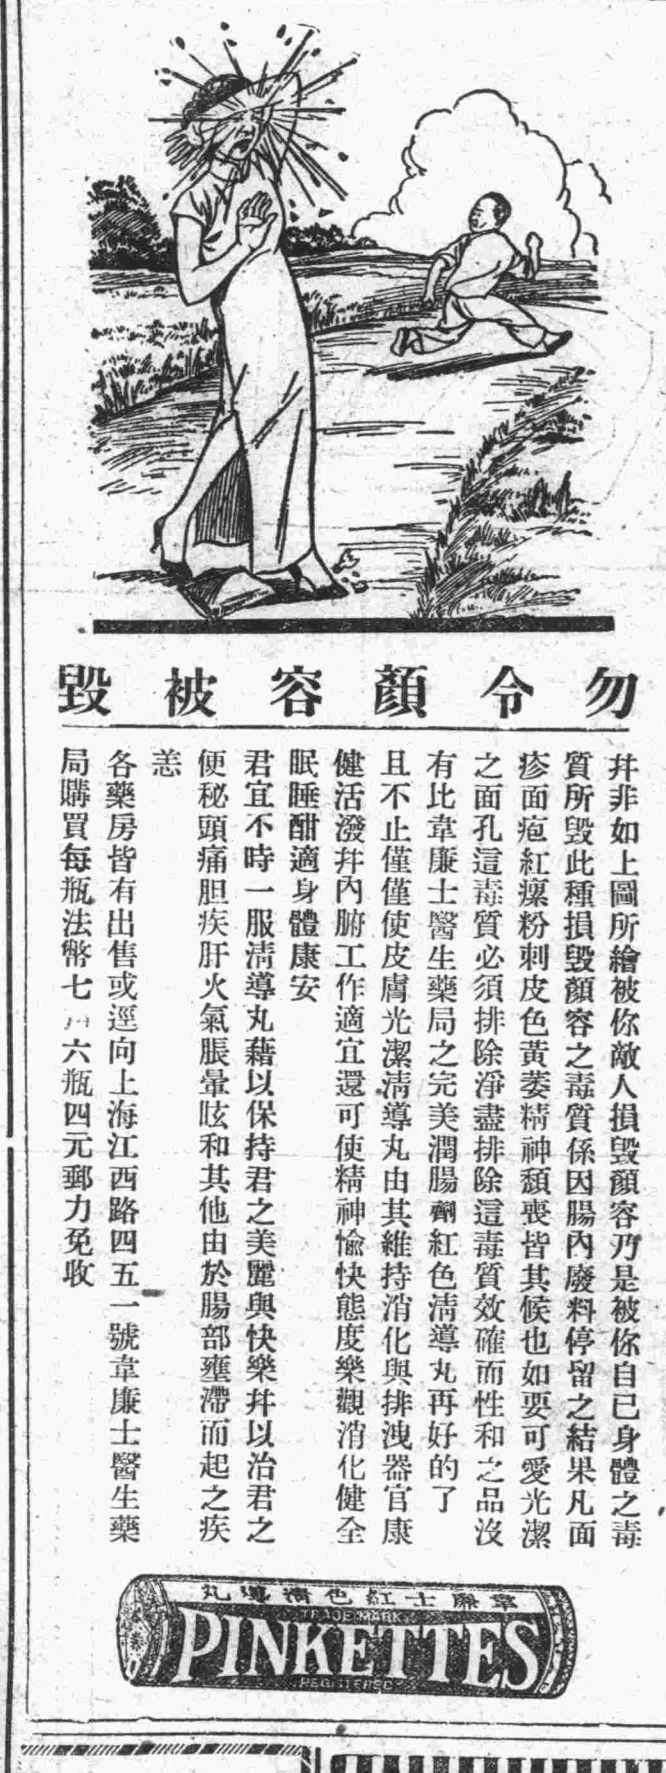 勿令顏容被毀
幷非如上圖所繪被你敵人損毀顏容乃是被你自己身體之毒
質所毀此種損毀顏容之毒質係因腸內廢料停留之結果凡面
疹面疱紅瘰粉刺皮色黃萎精神頹喪皆其候也如要可愛光潔
之面孔這毒質必須排除淨盡排除這毒質效確而性和之品沒
有比韋廉士醫生藥局之完美潤腸劑紅色淸導丸再好的了
且不止僅僅使皮膚光潔淸導丸由其維持消化與排洩器官康
健活潑幷內腑工作適宜還可使精神愉快態度樂觀消化健全
眠睡酣適身體康安
君宜不時一服淸導丸藉以保持君之美麗與快樂幷以治君之
便秘頭痛胆疾肝火氣脹暈眩和其他由於腸部壅滯而起之疾
恙
各藥房皆有出售或逕向上海江西路四五一號韋廉士醫生藥
局購買每瓶法幣七 六瓶四元郵力免收
韋廉士紅色淸導丸
TRADE MARK
PINKETTES
REGISTERED